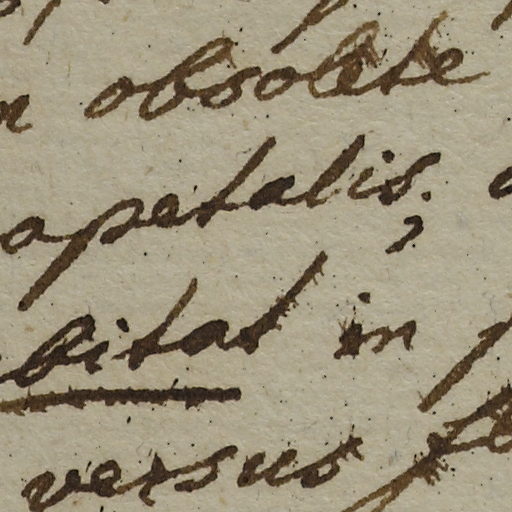 obsolete
apetalis;
bitat in
versus